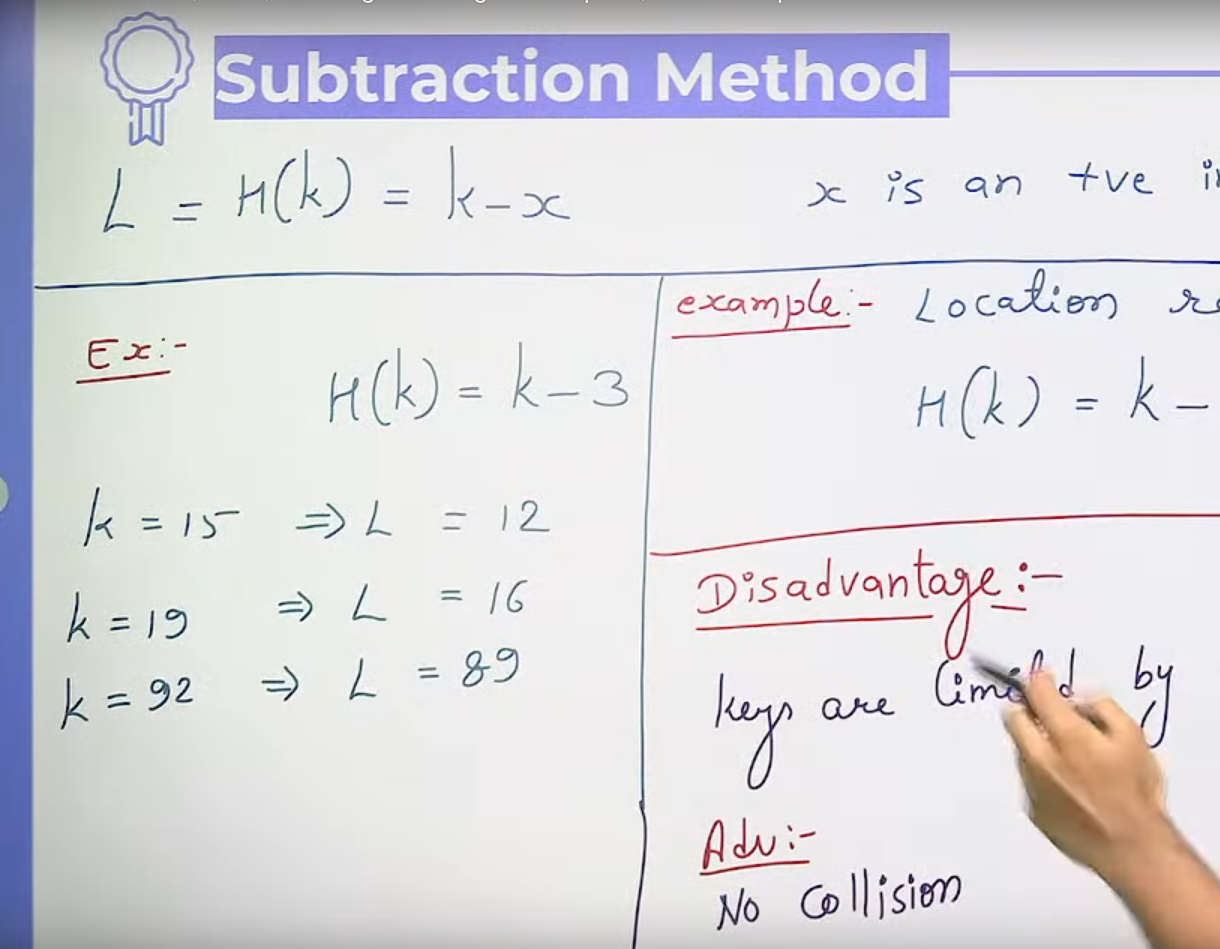 Subtraction Method
L = H(k) = k-x
x is an +ve
Ex:-
H(k) = k-3
k = 15 ⇒ L = 12
k = 19 ⇒ L = 16
k = 92 ⇒ L = 89
example:- Location
H(k) = k-
Disadvantage:-
keys are limited by
Adv:-
No Collision